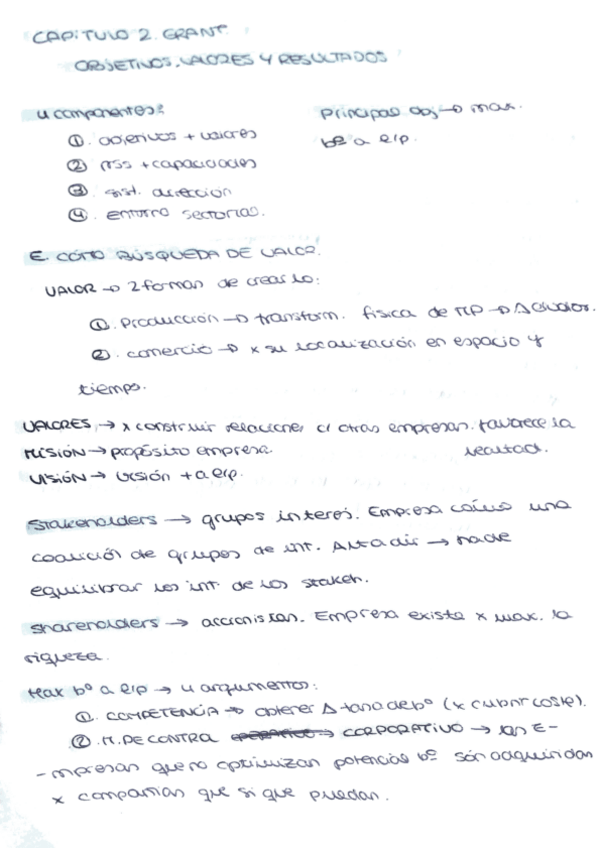 CAPÍTULO 2. GRANT.
OBJETIVOS, VALORES Y RESULTADOS
4 componentes: Principal obj → max.
① objetivos + valores bº a l/p.
② rss + capacidades
③ sist. dirección
④ entorno sectorial.
E COMO BÚSQUEDA DE VALOR.
VALOR → 2 formas de crearlo:
① Producción → transform. física de MP → Δ valor.
② comercio → x su localización en espacio y
tiempo.
VALORES → x construir relaciones c/ otras empresas. Favorece la
MISIÓN → propósito empresa. lealtad.
VISIÓN → visión + a l/p.
Stakeholders → grupos interés. Empresa como una
coalición de grupos de int. Alta dir → hade
equilibrar los int. de los stakeh.
shareholders → accionistas. Empresa existe x max. la
riqueza.
Max bº a l/p → 4 argumentos:
① COMPETENCIA → obtener Δ tasa de bº (x cubrir coste).
② M. DE CONTROL CORPORATIVO → las E-
-mpresas que no optimizan potencial bº són adquiridas
x compañías que si que puedan.